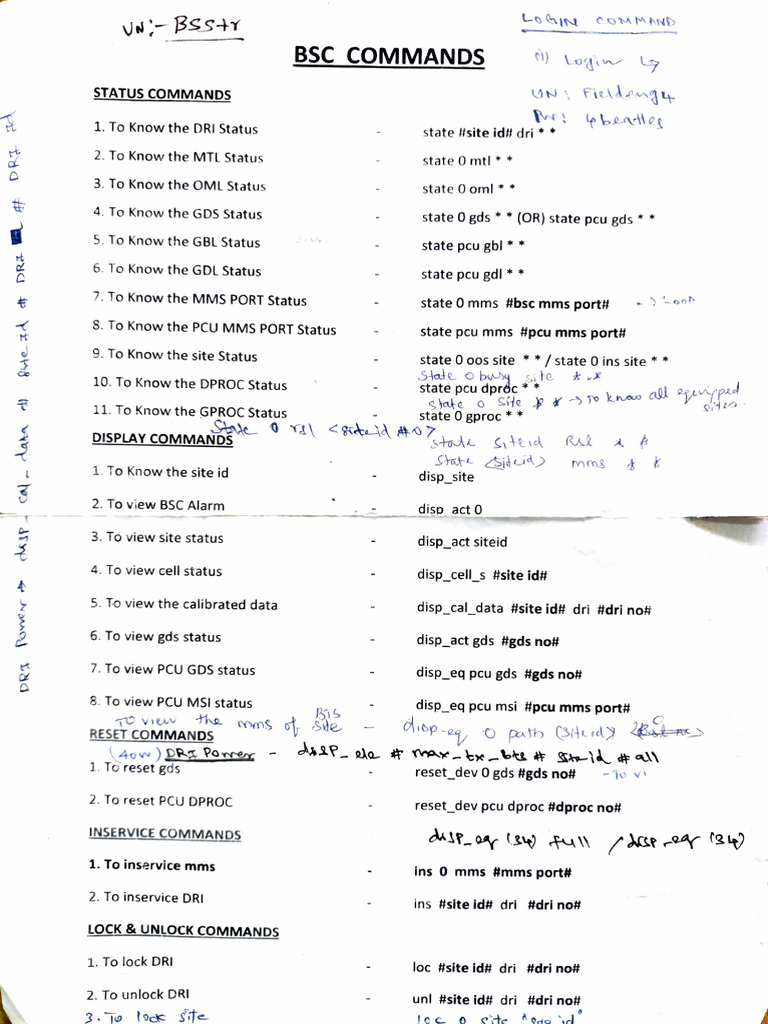 UN:- BSStr
LOGIN COMMAND
BSC COMMANDS
(i) Login ↳
UN: Fieldeng4
PW: 4beatles
STATUS COMMANDS
1. To Know the DRI Status - state #site id# dri * *
2. To Know the MTL Status - state 0 mtl * *
3. To Know the OML Status - state 0 oml * *
4. To Know the GDS Status - state 0 gds * * (OR) state pcu gds * *
5. To Know the GBL Status - state pcu gbl * *
6. To Know the GDL Status - state pcu gdl * *
7. To Know the MMS PORT Status - state 0 mms #bsc mms port# -> Loop
8. To Know the PCU MMS PORT Status - state pcu mms #pcu mms port#
9. To Know the site Status - state 0 oos site * * / state 0 ins site * *
State 0 busy site * *
10. To Know the DPROC Status - state pcu dproc * *
State 0 site * * → To know all equipped sites.
11. To Know the GPROC Status - state 0 gproc * *
State 0 rsl <siteid #0>
State siteid Rsl * *
DISPLAY COMMANDS
State (siteid) mms * *
1. To Know the site id - disp_site
2. To view BSC Alarm - disp_act 0
3. To view site status - disp_act siteid
4. To view cell status - disp_cell_s #site id#
5. To view the calibrated data - disp_cal_data #site id# dri #dri no#
6. To view gds status - disp_act gds #gds no#
7. To view PCU GDS status - disp_eq pcu gds #gds no#
8. To view PCU MSI status - disp_eq pcu msi #pcu mms port#
To view the mms of BTS site - disp-eq 0 path (siteid) 0
RESET COMMANDS
(40W) DRI Power - disp_ele # max_tx_bts # site id # all
1. To reset gds - reset_dev 0 gds #gds no# - To vi
2. To reset PCU DPROC - reset_dev pcu dproc #dproc no#
INSERVICE COMMANDS
disp_eq (34) full / disp_eq (34)
1. To inservice mms - ins 0 mms #mms port#
2. To inservice DRI - ins #site id# dri #dri no#
LOCK & UNLOCK COMMANDS
1. To lock DRI - loc #site id# dri #dri no#
2. To unlock DRI - unl #site id# dri #dri no#
3. To lock site loc 0 site "site id"
DRI Power → disp_cal_data # Site id # DRI # DRI id